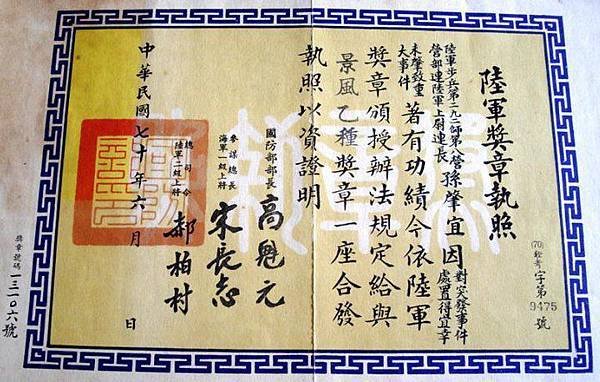 陸軍獎章執照
(70) 考字第9475號
陸軍步兵第二九二師第八營
營部連陸軍上尉連長孫肇宜因對突發事件
處置得宜幸
未肇致重
大事件著有功績今依陸軍
獎章頒授辦法規定給與
景風乙種獎章一座合發
執照以資證明
國防部部長高魁元
參謀總長
海軍一級上將宋長志
總司令
陸軍二級上將郝柏村
中華民國七十年六月 日
獎章號碼一三一〇六號